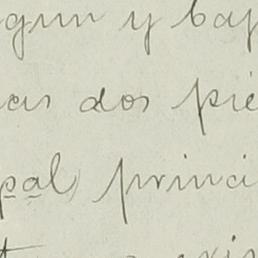 gun y baj
as dos pié
pal princi